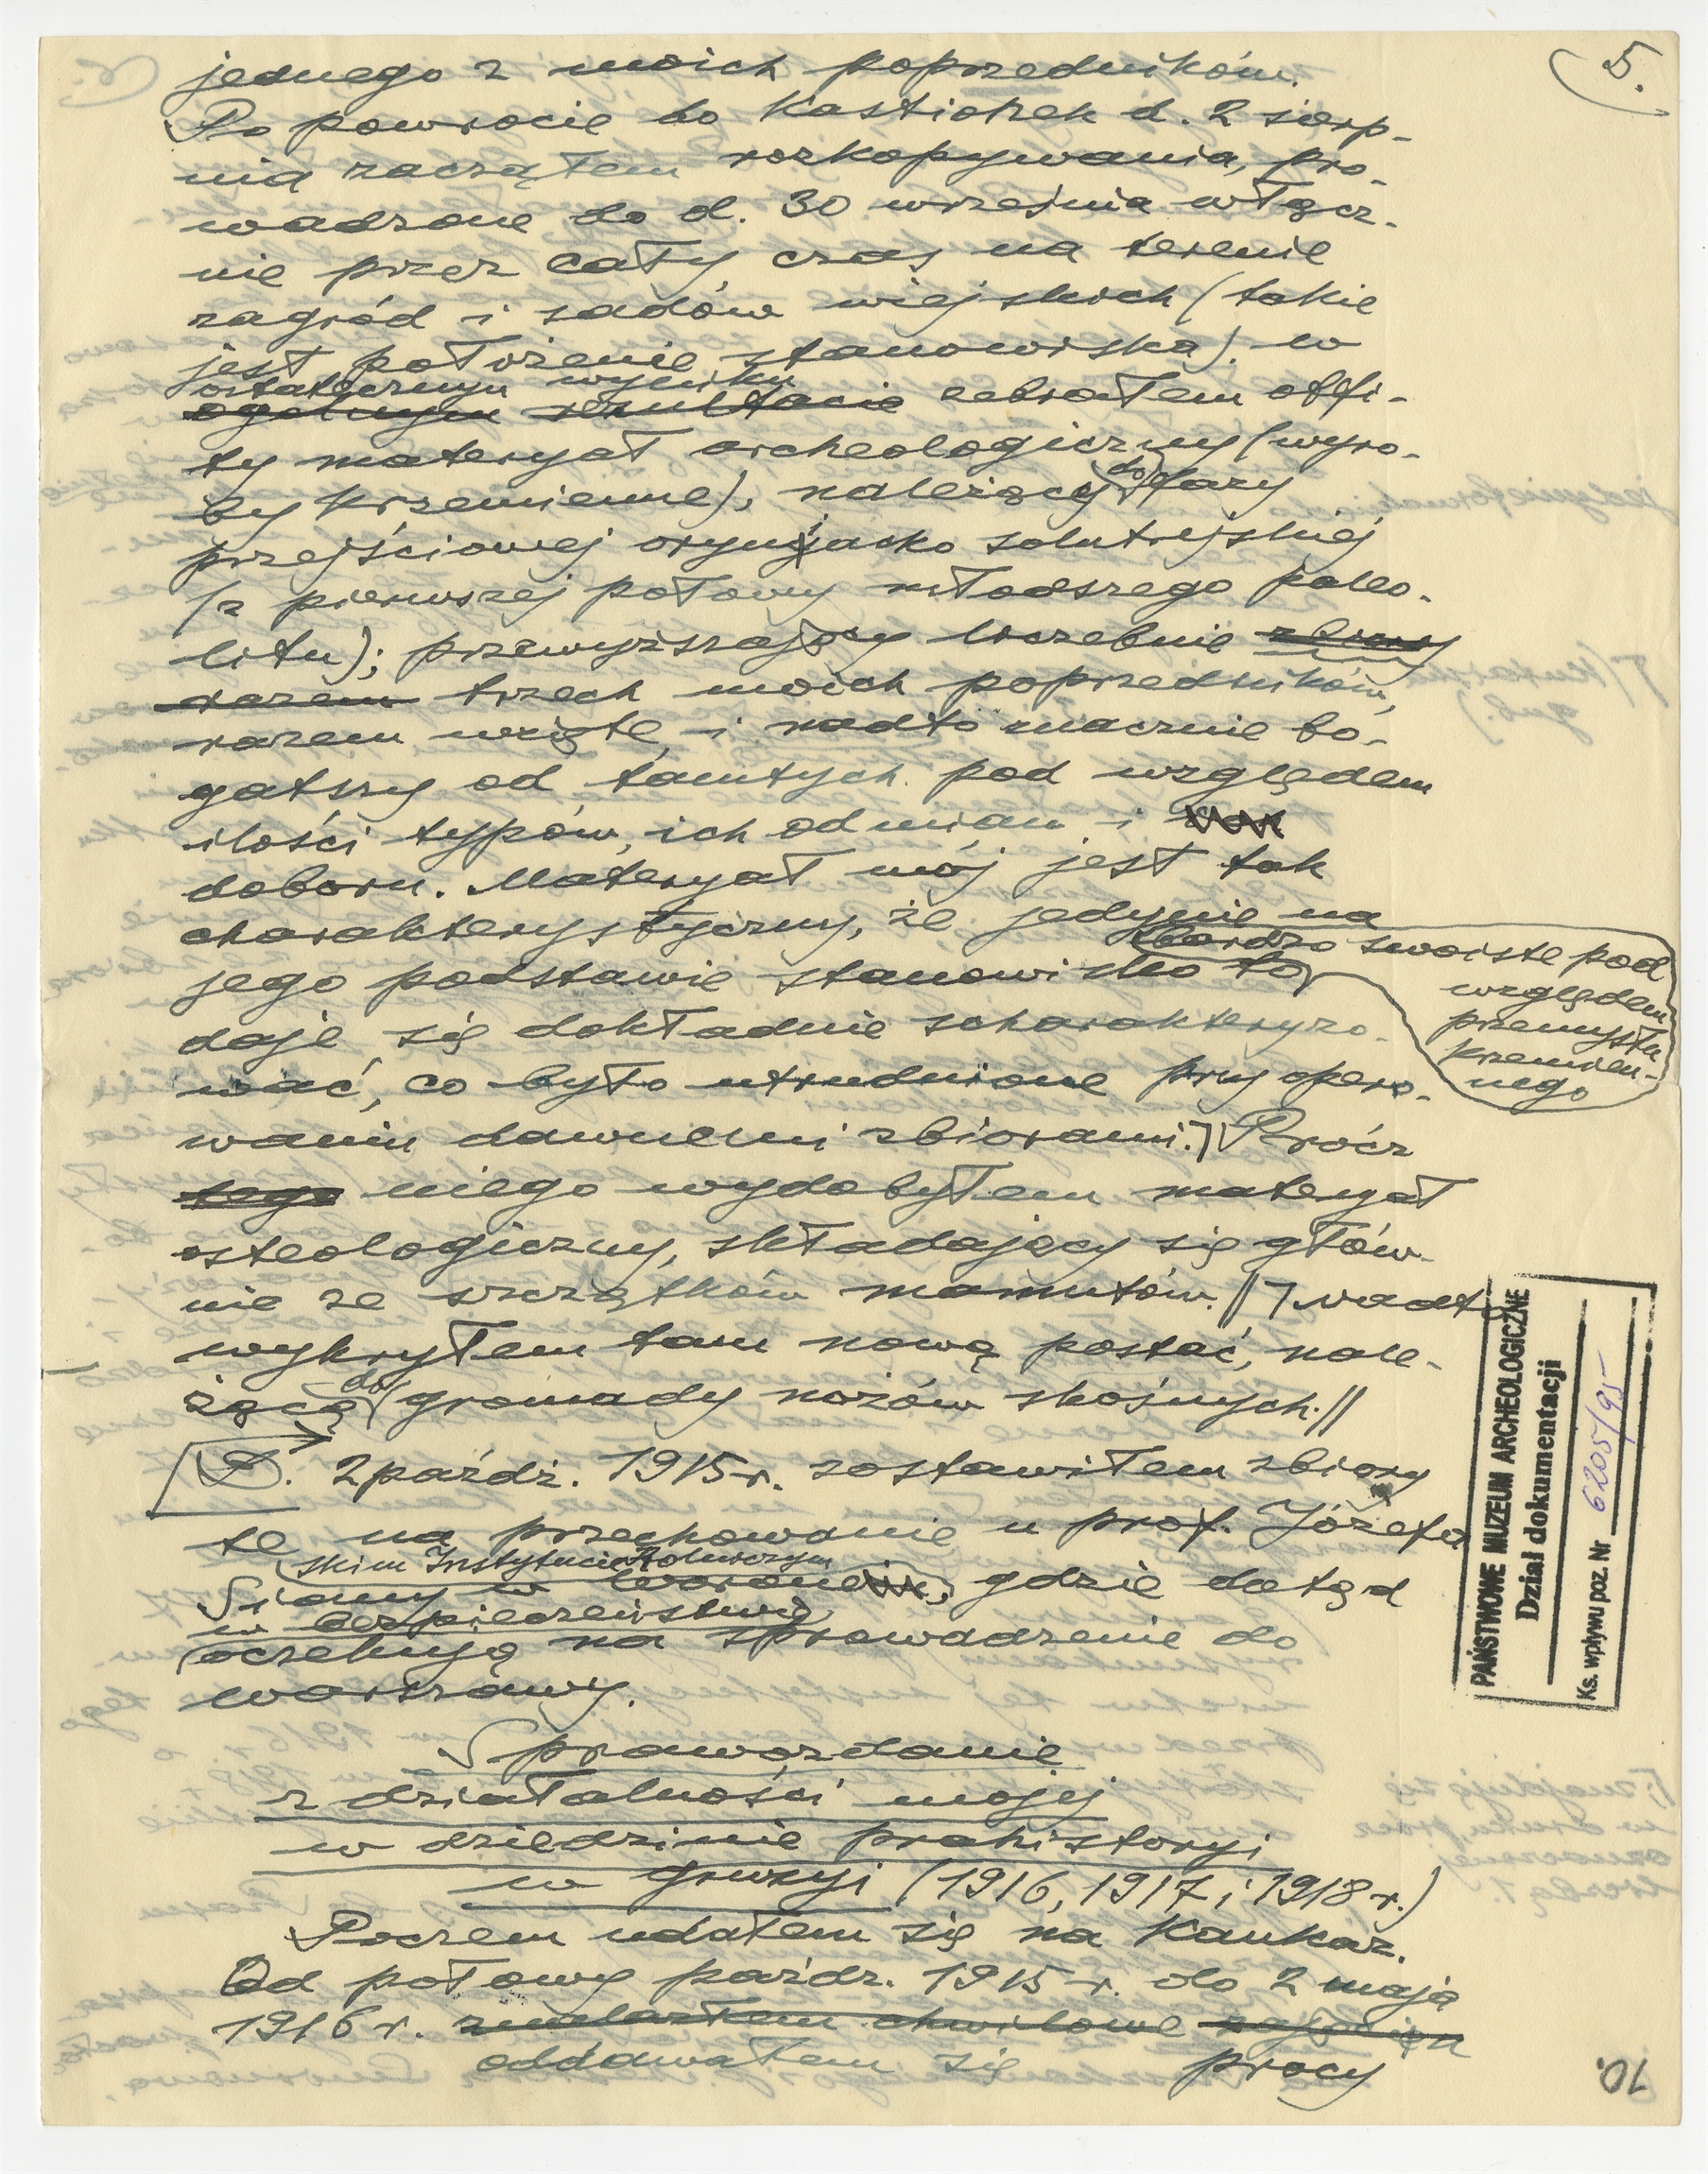 5.
jednego z moich poprzedników.
Po powrocie do Kastionek d. 2 sierp-
nia zacząłem rozkopywania, pro-
wadzone do d. 30 września włącz-
nie przez cały czas na terenie
zagród i sadów wiejskich (takie
jest położenie stanowiska). w
ostatecznym wyniku
ogólnym rezultacie zebrałem obfi-
ty materyał archeologiczny (wyro-
by krzemienne), należący do fazy
przejściowej oryniacko solutrejskiej
(z pierwszej połowy młodszego paleo-
litu); przewyższający liczebnie zbiory
razem trzech moich poprzedników,
razem wzięte, i nadto znacznie bo-
gatszy od tamtych pod względem
ilości typów, ich odmian i
doboru. Materyał mój jest tak
charakterystyczny, że jedynie na
jego podstawie stanowisko to,
bardzo swoiste pod
względem
przemysłu
krzemien-
nego
daje się dokładnie scharakteryzo-
wać, co było utrudnione przy opero-
waniu dawnemi zbiorami.] Prócz
tego niego wydobyłem materyał
osteologiczny, składający się głów-
nie ze szczątków mamutów. // 7 nadto
wykryłem tam nową postać, nale-
żącą do gromady nożów skośnych. //
D. 2 paźdz. 1915 r. zostawiłem zbiory
te na przechowanie u prof. Józefa
skim Instytucie Rolniczym
Siomy w Worone, gdzie dotąd
w bezpieczeństwie
oczekują na sprowadzenie do
Warszawy.
Sprawozdanie
z działalności mojej
w dziedzinie prahistoryi
w Gruzyi (1916, 1917 i 1918 r.)
Poczem udałem się na Kaukaz.
Od połowy paźdz. 1915 r. do 2 maja
1916 r. znalazłem chwilowe zajęcia
oddawałem się pracy
10.
PAŃSTWOWE MUZEUM ARCHEOLOGICZNE
Dział dokumentacji
Ks. wpływu poz. Nr 6205/95